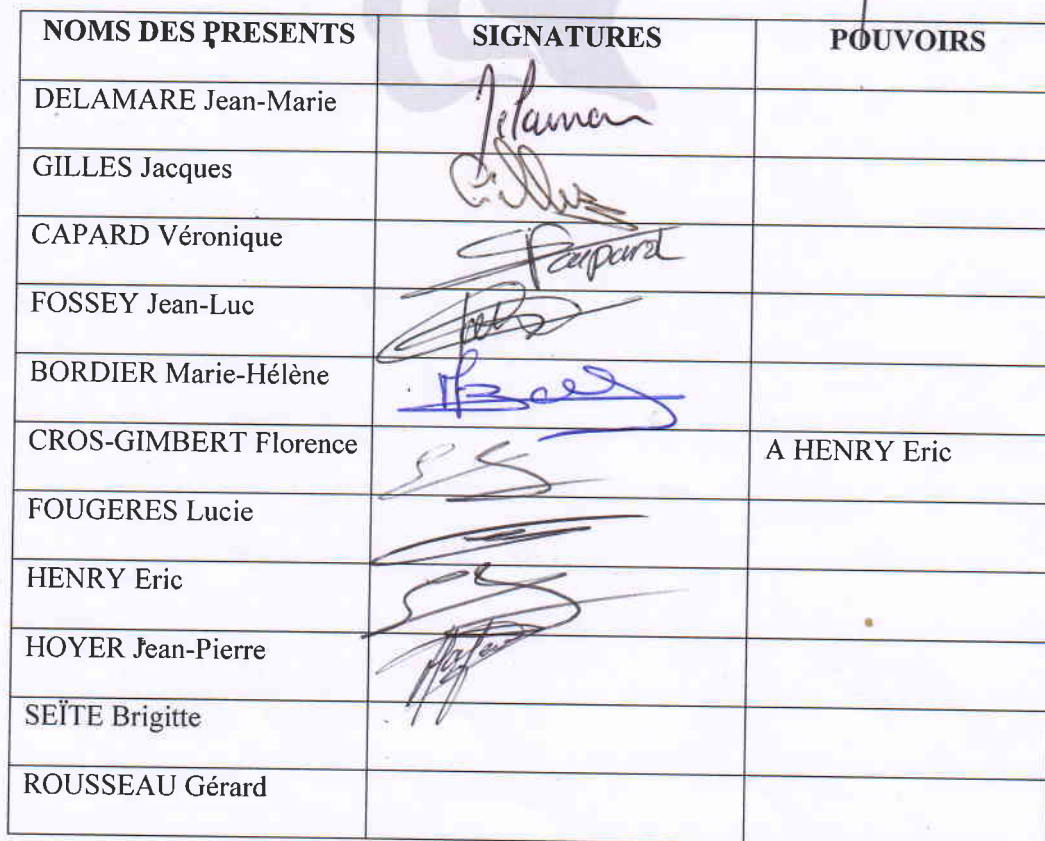 NOMS DES PRESENTS SIGNATURES POUVOIRS
DELAMARE Jean-Marie
GILLES Jacques Gilles
CAPARD Véronique Capard
FOSSEY Jean-Luc
BORDIER Marie-Hélène
CROS-GIMBERT Florence A HENRY Eric
FOUGERES Lucie
HENRY Eric
HOYER Jean-Pierre
SEÏTE Brigitte
ROUSSEAU Gérard